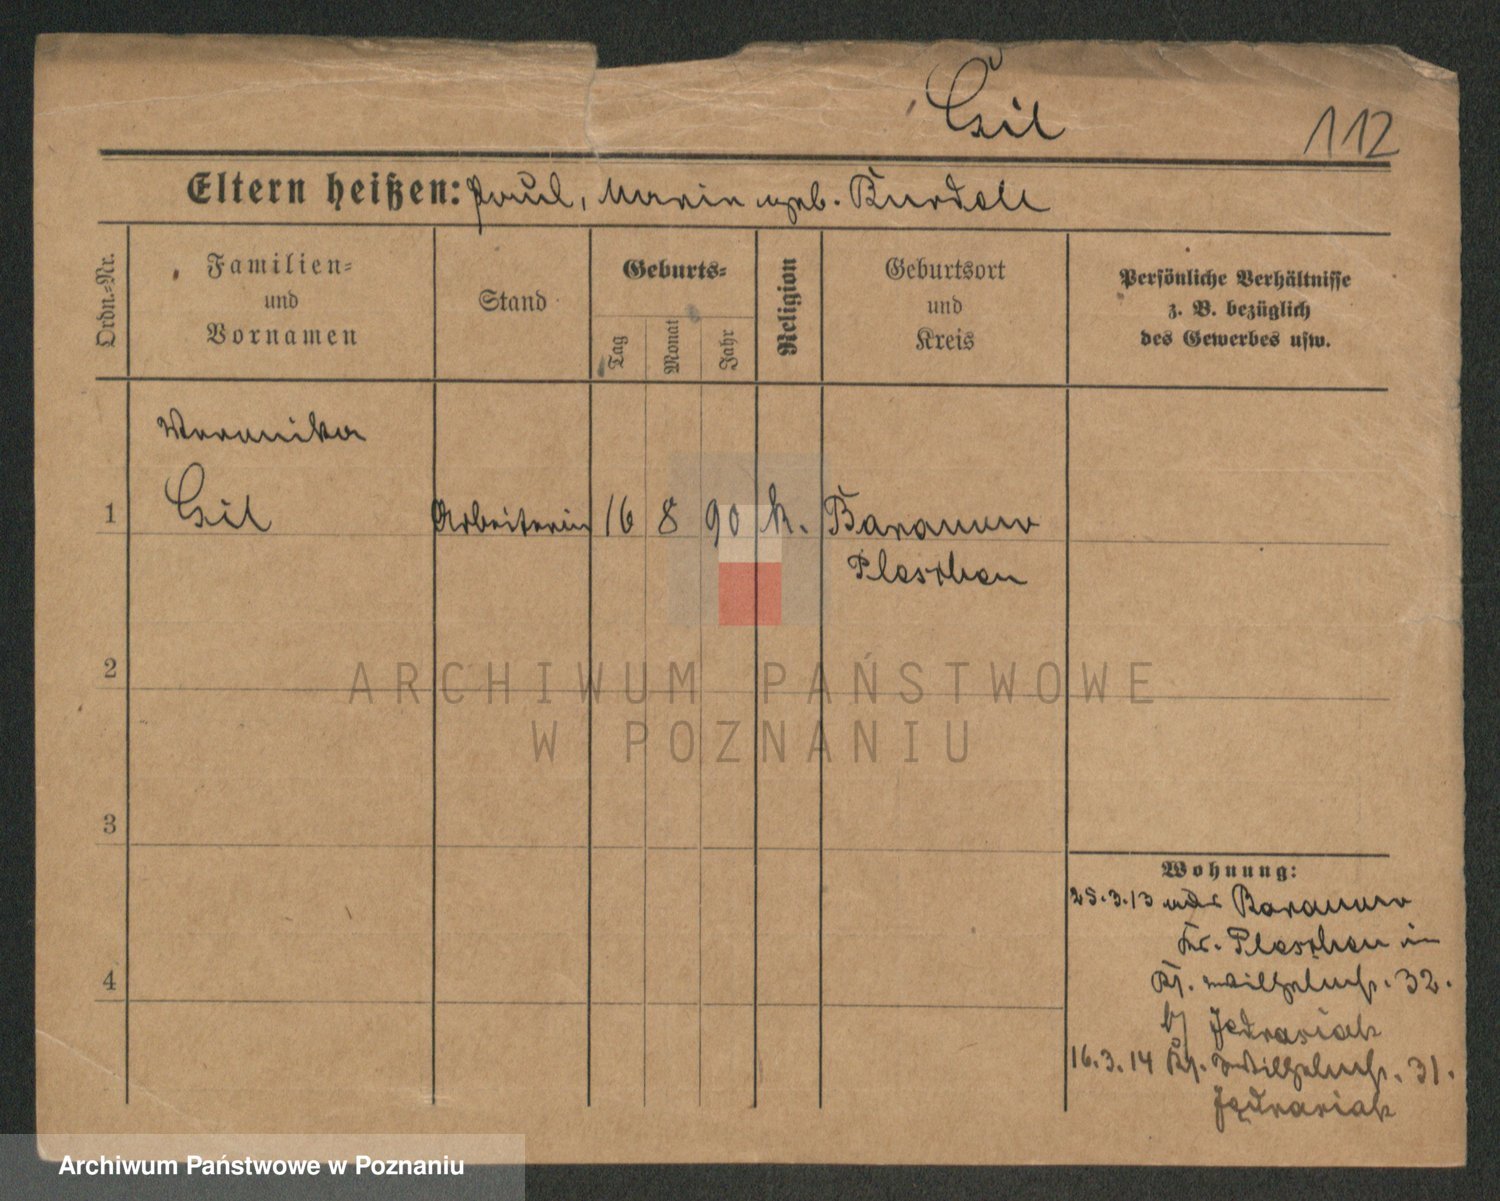 Czil
112
Eltern heißen: Paul, Maria geb. Burdak
Ordn.-Nr.
Familien-
und
Vornamen
Stand
Geburts-
Tag
Monat
Jahr
Religion
Geburtsort
und
Kreis
Persönliche Verhältnisse
z. B. bezüglich
des Gewerbes usw.
Veronika
1 Czil Arbeiterin 16 8 90 k. Baranow
Pleschen
2
ARCHIWUM PAŃSTWOWE
W POZNANIU
3
Wohnung:
25.3.13 aus Baranow
Kr. Pleschen in
4
Wilhelmstr. 32.
b/ Jedrasiak
16.3.14 Wilhelmstr. 31.
Jędrasiak
Archiwum Państwowe w Poznaniu